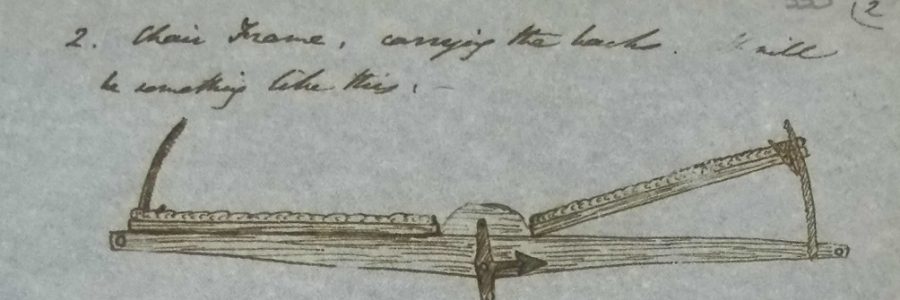 (2
2. Chair Frame, carrying the backs. It will
be something like this:-